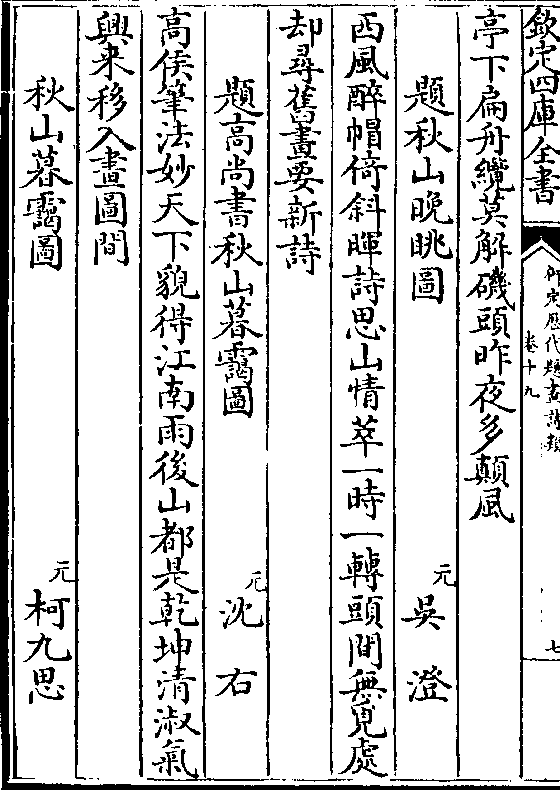 欽定四庫全書
御定歷代題畫詩類
卷十九
七
亭下扁舟纜莫解磯頭昨夜多顛風
題秋山晚眺圖 元 吳澄
西風醉帽倚斜暉詩思山情萃一時一轉頭間無覓處
却尋舊畫要新詩
題高尚書秋山暮靄圖 元 沈右
高侯筆法妙天下貌得江南雨後山都是乾坤清淑氣
興来移入畫圖間
秋山暮靄圖 元 柯九思